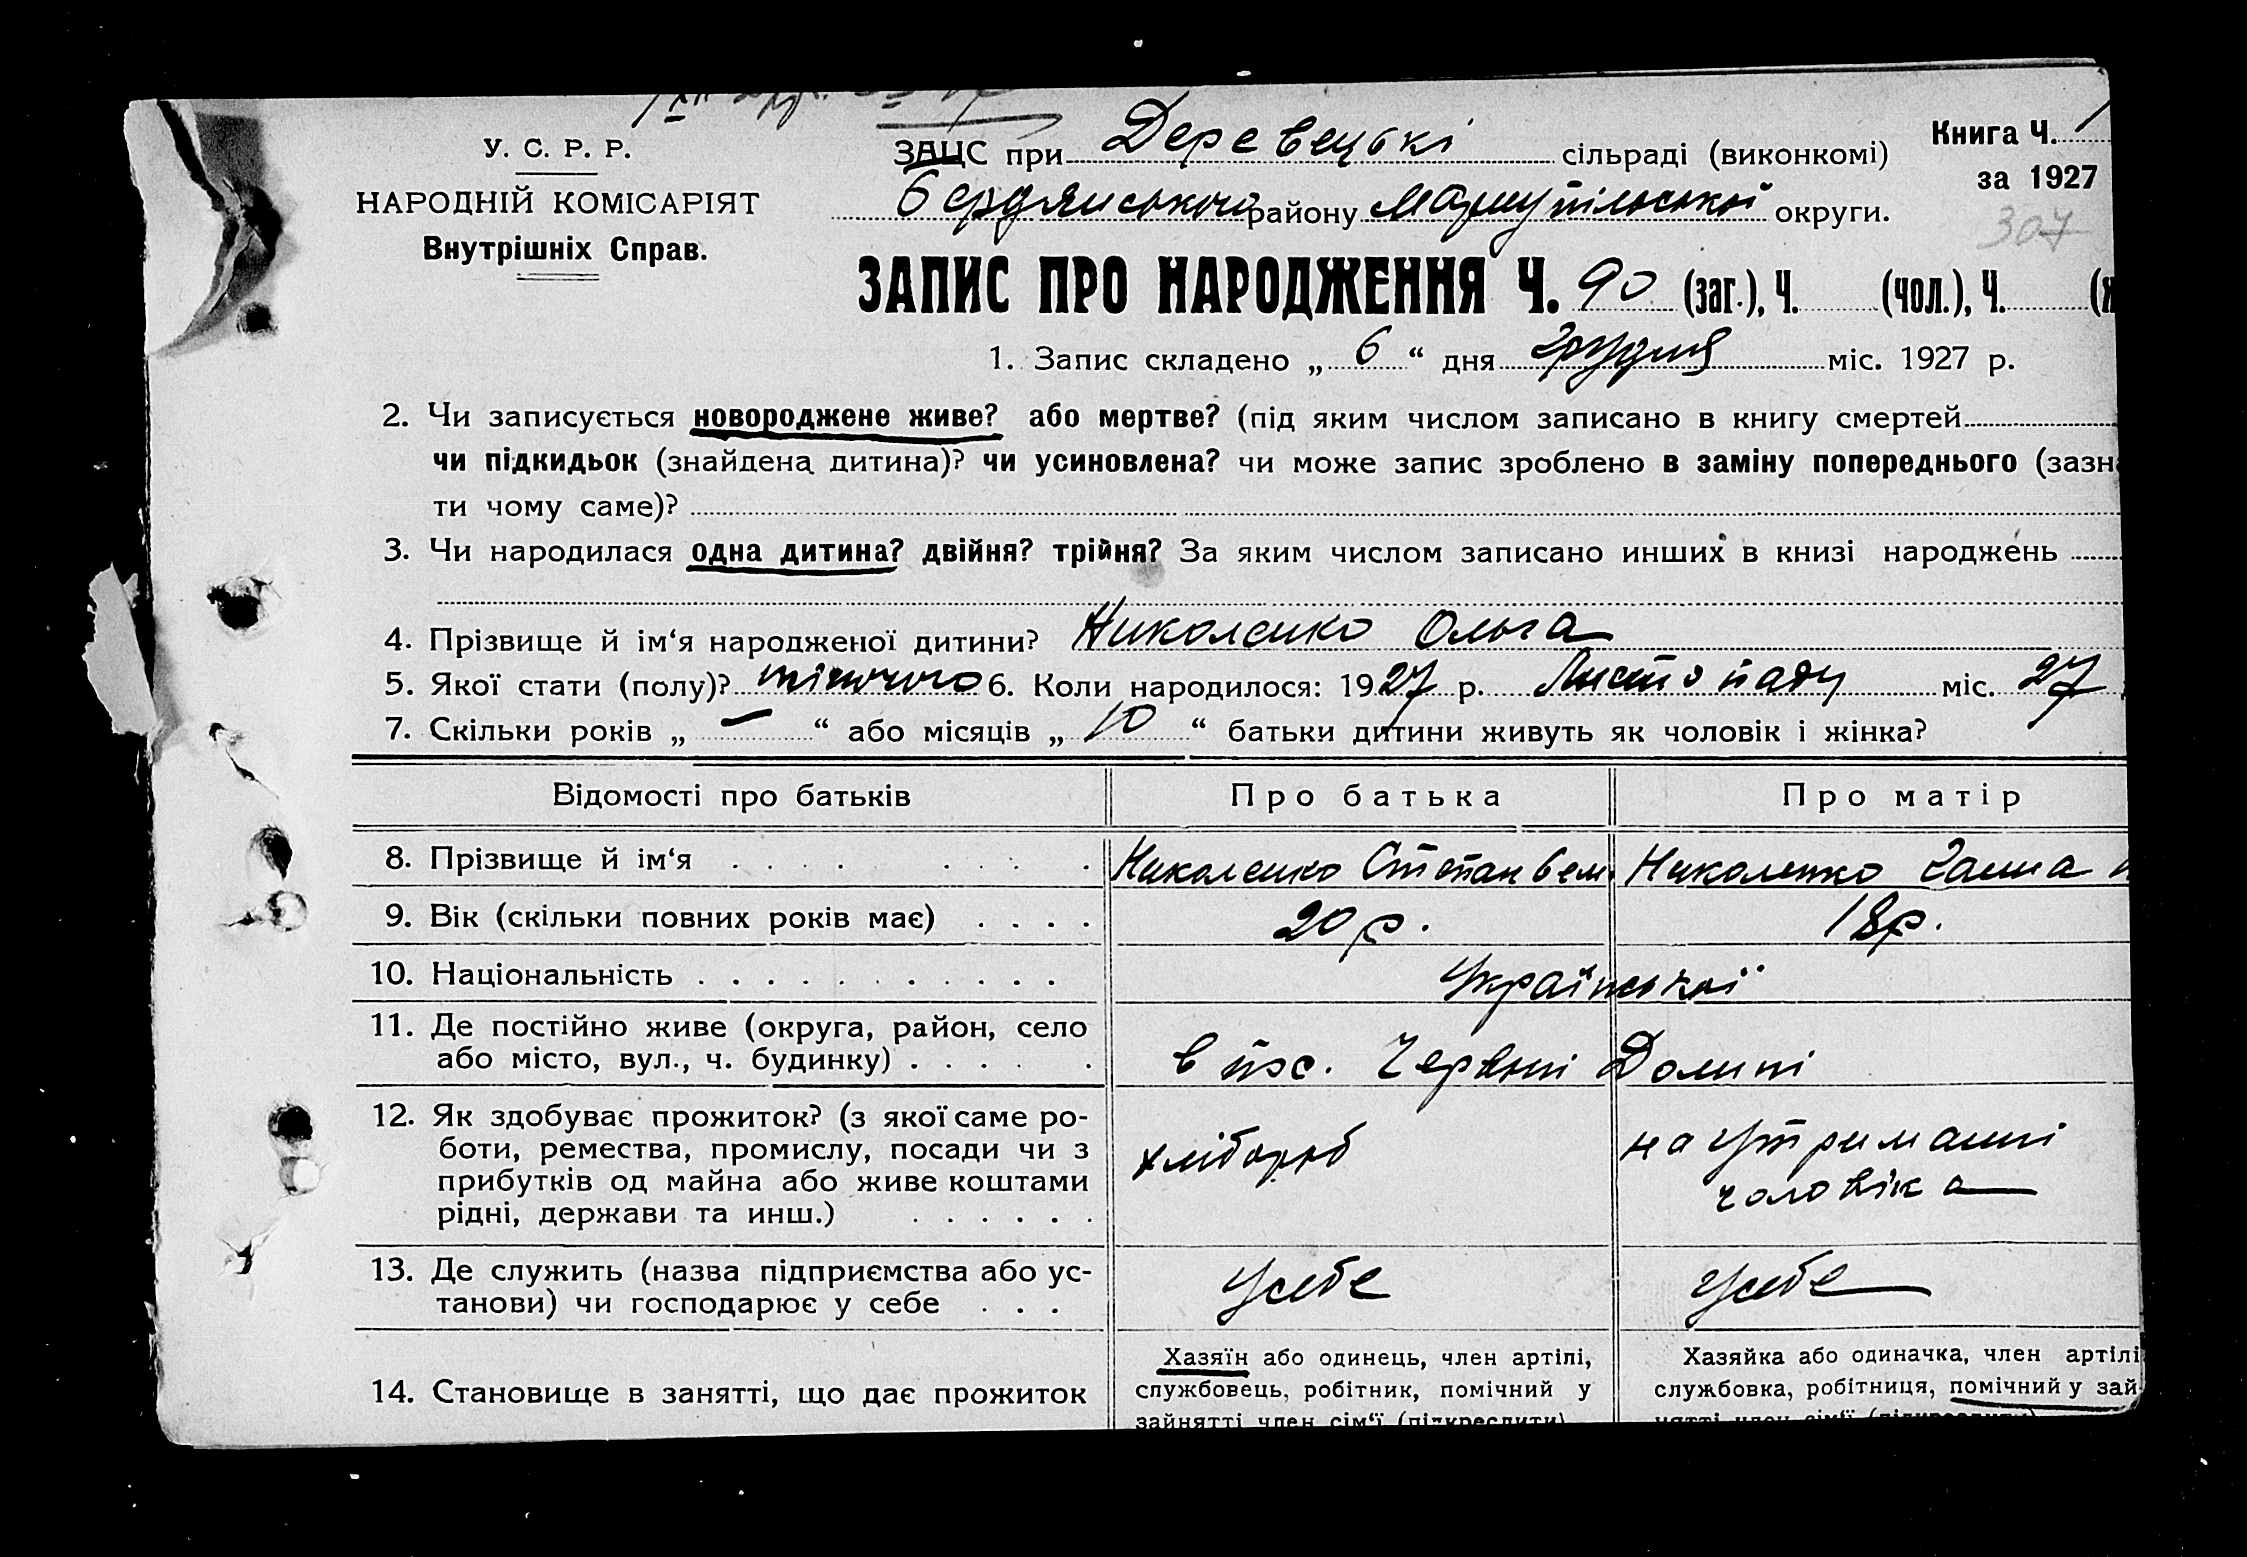 У. С. Р. Р.
НАРОДНІЙ КОМІСАРІЯТ
Внутрішніх Справ.
ЗАЦС при Деревецькі сільраді (виконкомі)
Бердянського району Маріупільської округи.
Книга Ч. 1
за 1927
307
ЗАПИС ПРО НАРОДЖЕННЯ Ч. 90 (заг.), Ч. (чол.), Ч. (ж
1. Запис складено „ 6 “ дня Грудня міс. 1927 р.
2. Чи записується новороджене живе? або мертве? (під яким числом записано в книгу смертей
чи підкидьок (знайдена дитина)? чи усиновлена? чи може запис зроблено в заміну попереднього (зазн
ти чому саме)?
3. Чи народилася одна дитина? двійня? трійня? За яким числом записано инших в книзі народжень
4. Прізвище й ім‘я народженої дитини? Николенко Ольга
5. Якої стати (полу)? жіночого 6. Коли народилося: 1927 р. Листопаду міс. 27
7. Скільки років „ — “ або місяців „ 10 “ батьки дитини живуть як чоловік і жінка?
Відомості про батьків Про батька Про матір
8. Прізвище й ім‘я Николенко Степан Николенко Галина
9. Вік (скільки повних років має) 20 р. 18 р.
10. Національність Української
11. Де постійно живе (округа, район, село
або місто, вул., ч. будинку) в пос. Червоні Долині
12. Як здобуває прожиток? (з якої саме ро-
боти, ремества, промислу, посади чи з
прибутків од майна або живе коштами
рідні, держави та инш.)
хлібороб
на утриманні
чоловіка
13. Де служить (назва підприємства або ус-
танови) чи господарює у себе
у себе у себе
14. Становище в занятті, що дає прожиток
Хазяїн або одинець, член артілі,
службовець, робітник, помічний у
зайнятті член сім‘ї (підкреслити)
Хазяйка або одиначка, член артілі
службовка, робітниця, помічний у зай-
нятті член сім‘ї (підкреслити)